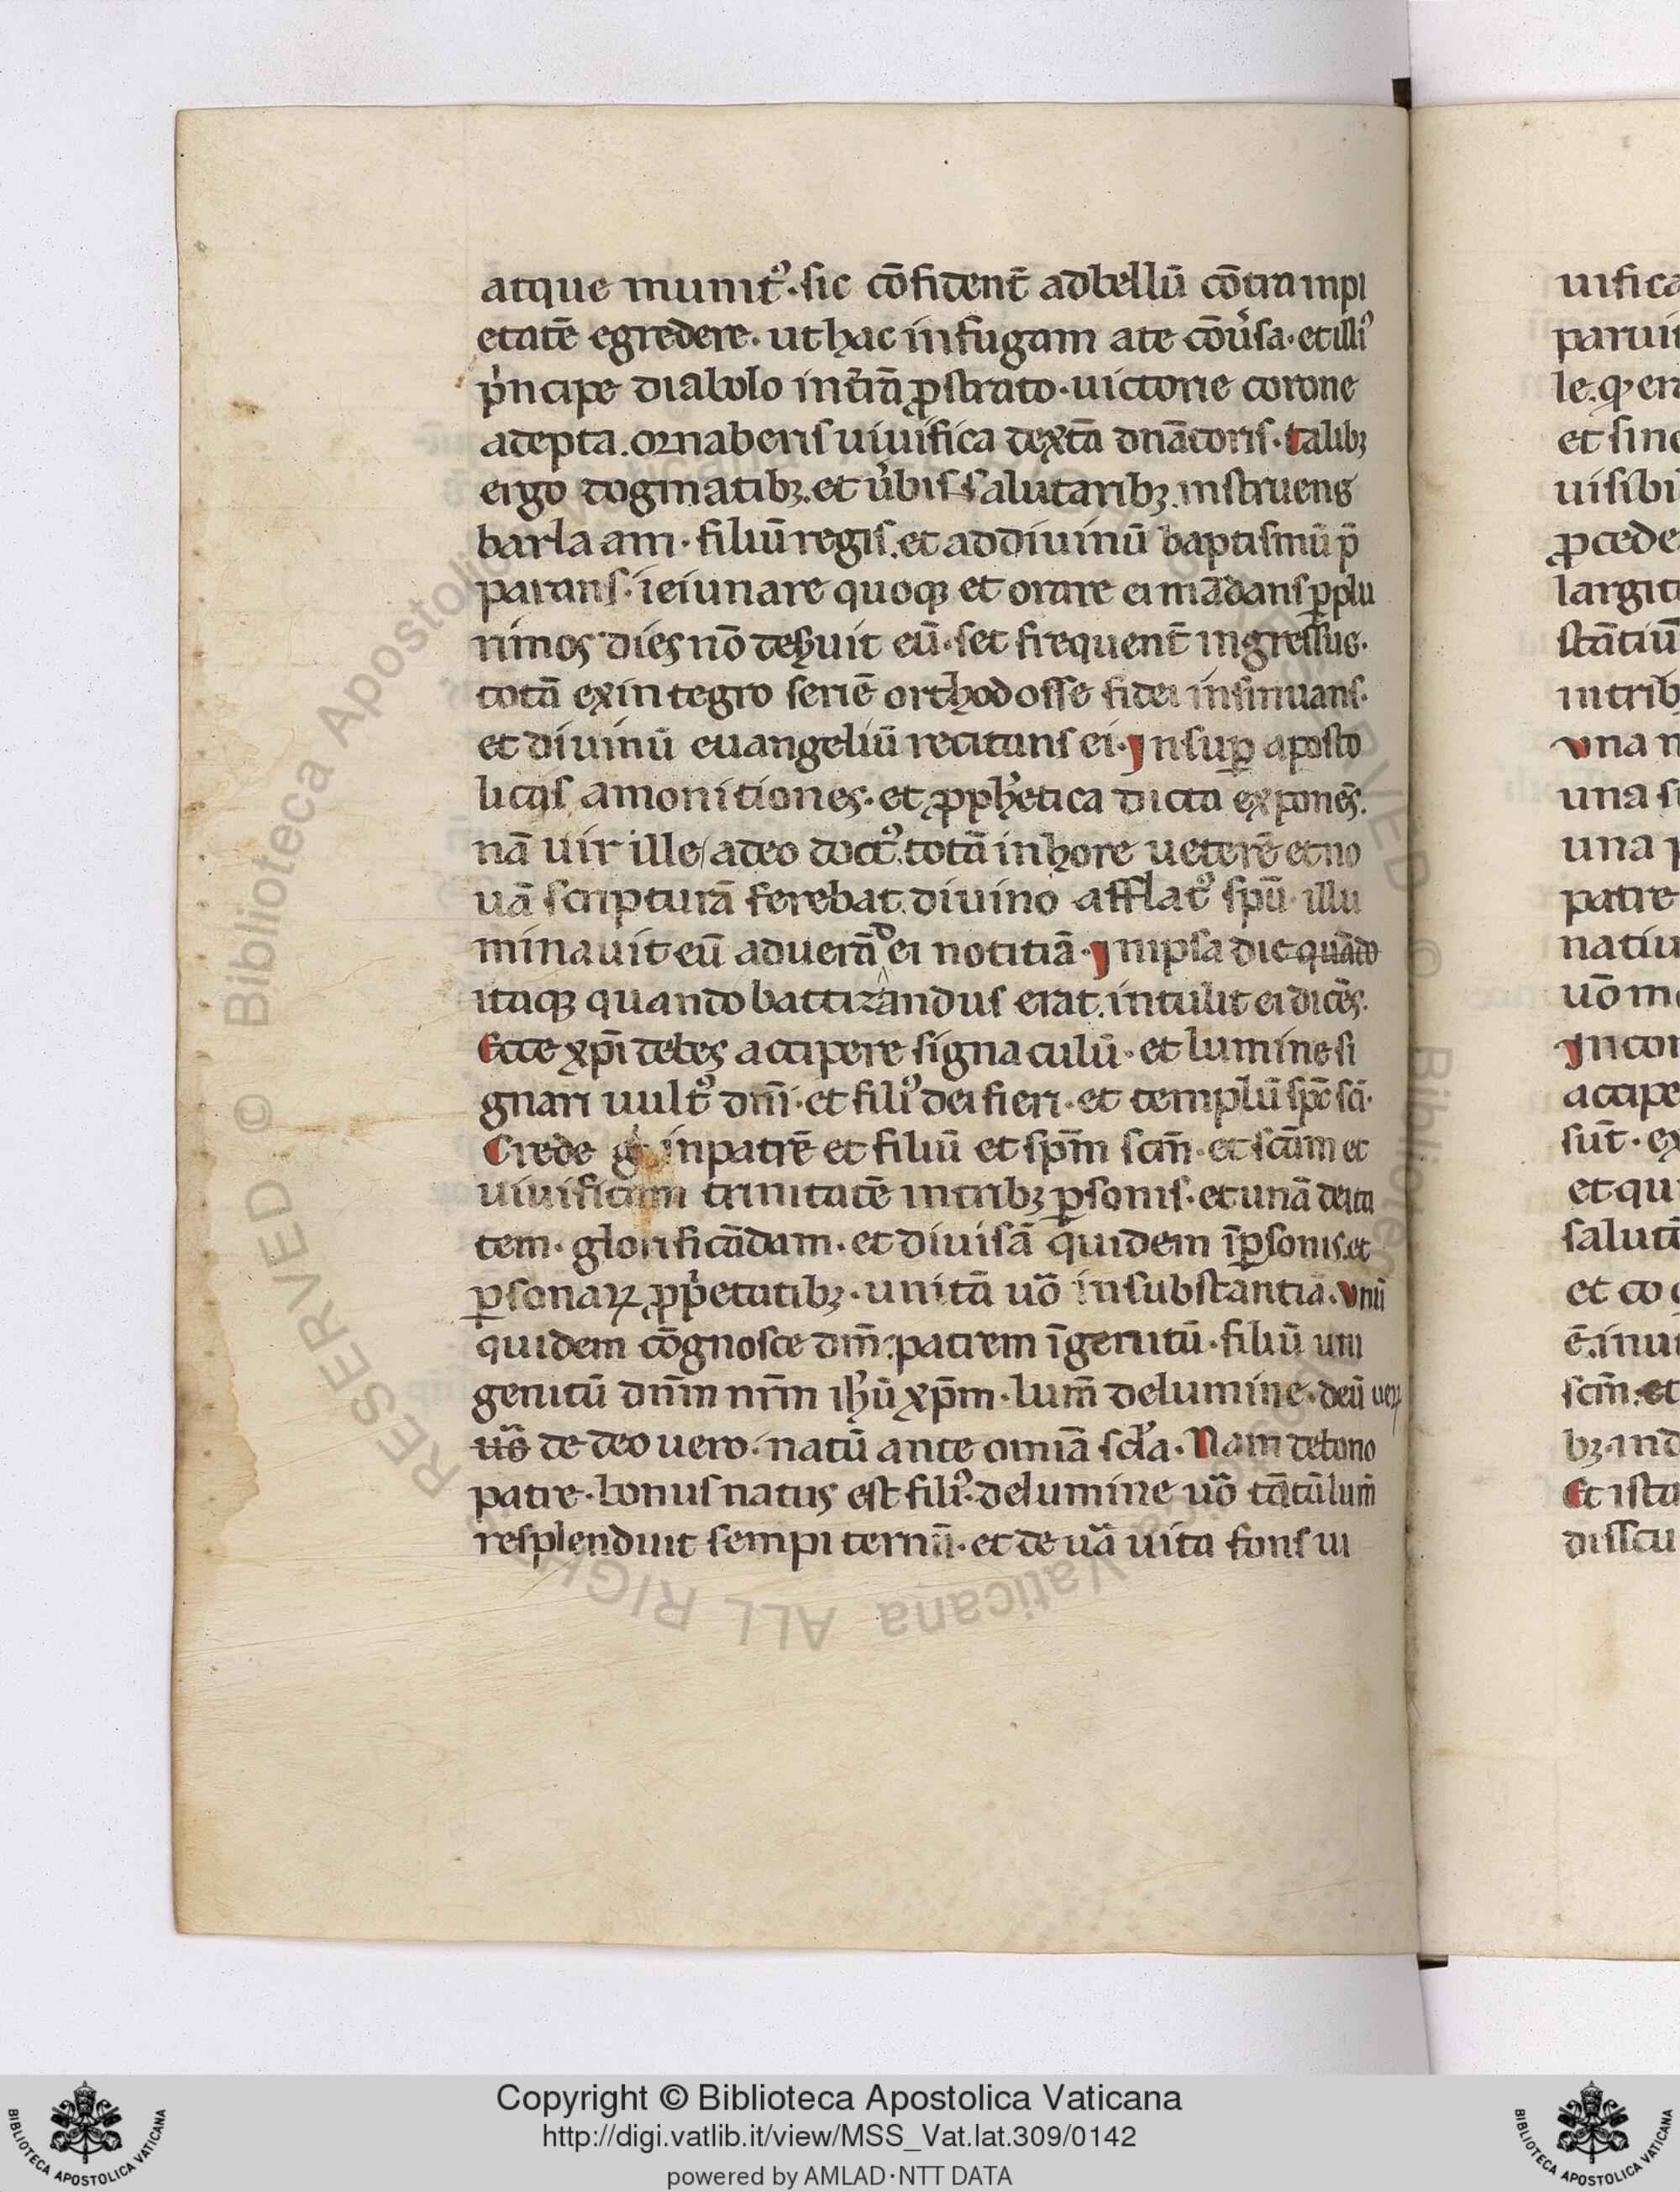 atque munitꝰ. sic cōfident̄ adbellū cōtra inpi
etatē egredere. ut hac infugam ate cōu̾sa. et illiꝰ
pͥncipe diabolo int̄rā ꝓstrato. uictorie corone
adepta. ornaberis uiuifica dext̄a dn̄atoris. talibꝫ
ergo dogmatibꝫ. et u̾bis salutaribꝫ. instruens
barlaam. filiū regis. et ad diuinū baptismū p̄
parans. ieiunare quoqꝫ et orare ei mādans ꝑplu
rimos dies nō destituit eū. set frequent̄ ingressus.
totā exintegro seriē orthodosse fidei insinuans.
et diuinū euangeliū recitans ei. Jnsuꝑ aposto
licas amonitiones. et ꝓph̾etica dicta exponēs.
nā uir ille adeo doctꝰ. totā inhore ueterē et no
uā scripturā ferebat. diuino afflatꝰ spū illu
minauit eū aduerā dei notitiā. Jnipsa die quādo
itaqꝫ quando battizandus erat. intulit ei dicēs.
Ecce xp̄i debes accipere signaculū. et lumine si
gnari uultꝰ dn̄i. et filiꝰ dei fieri. et templū sp̄c sc̄i.
Crede gͦ inpatrē et filiū et sp̄m sc̄m. et sc̄am et
uiuificam trinitatē intribꝫ ꝑsonis. et unā deita
tem. glorificādam. et diuisā quidem īꝑsonis. et
ꝑsonaꝝ ꝓpͥetatibꝫ. unitā uō insubstantia. vnū
quidem cōgnosce dm̄. patrem īgenitū. filiū uni
genitū dn̄m nr̄m ih̄ū xp̄m. lum̄ delumine. deū ueꝝ
uō de deo uero. natū ante omīa scl̄a. Nam debono
patre. bonus natus est filiꝰ. delumine uō tātū lum̄
resplenduit sempiternū. et de uā uita fons ui
uifica
paruі
et sin
uisibi
ꝓcede
largit
stātiū
intrib
vna
una
una
patre
natiu
uō m
Jncor
accipe
sūt. ex
et qu
salut
et co
sc̄m. et
Et ista
disscu
Copyright © Biblioteca Apostolica Vaticana
http://digi.vatlib.it/view/MSS_Vat.lat.309/0142
powered by AMLAD·NTT DATA
BIBLIOTECA APOSTOLICA VATICANA
BIBLIOTECA APOSTOLICA VATICANA